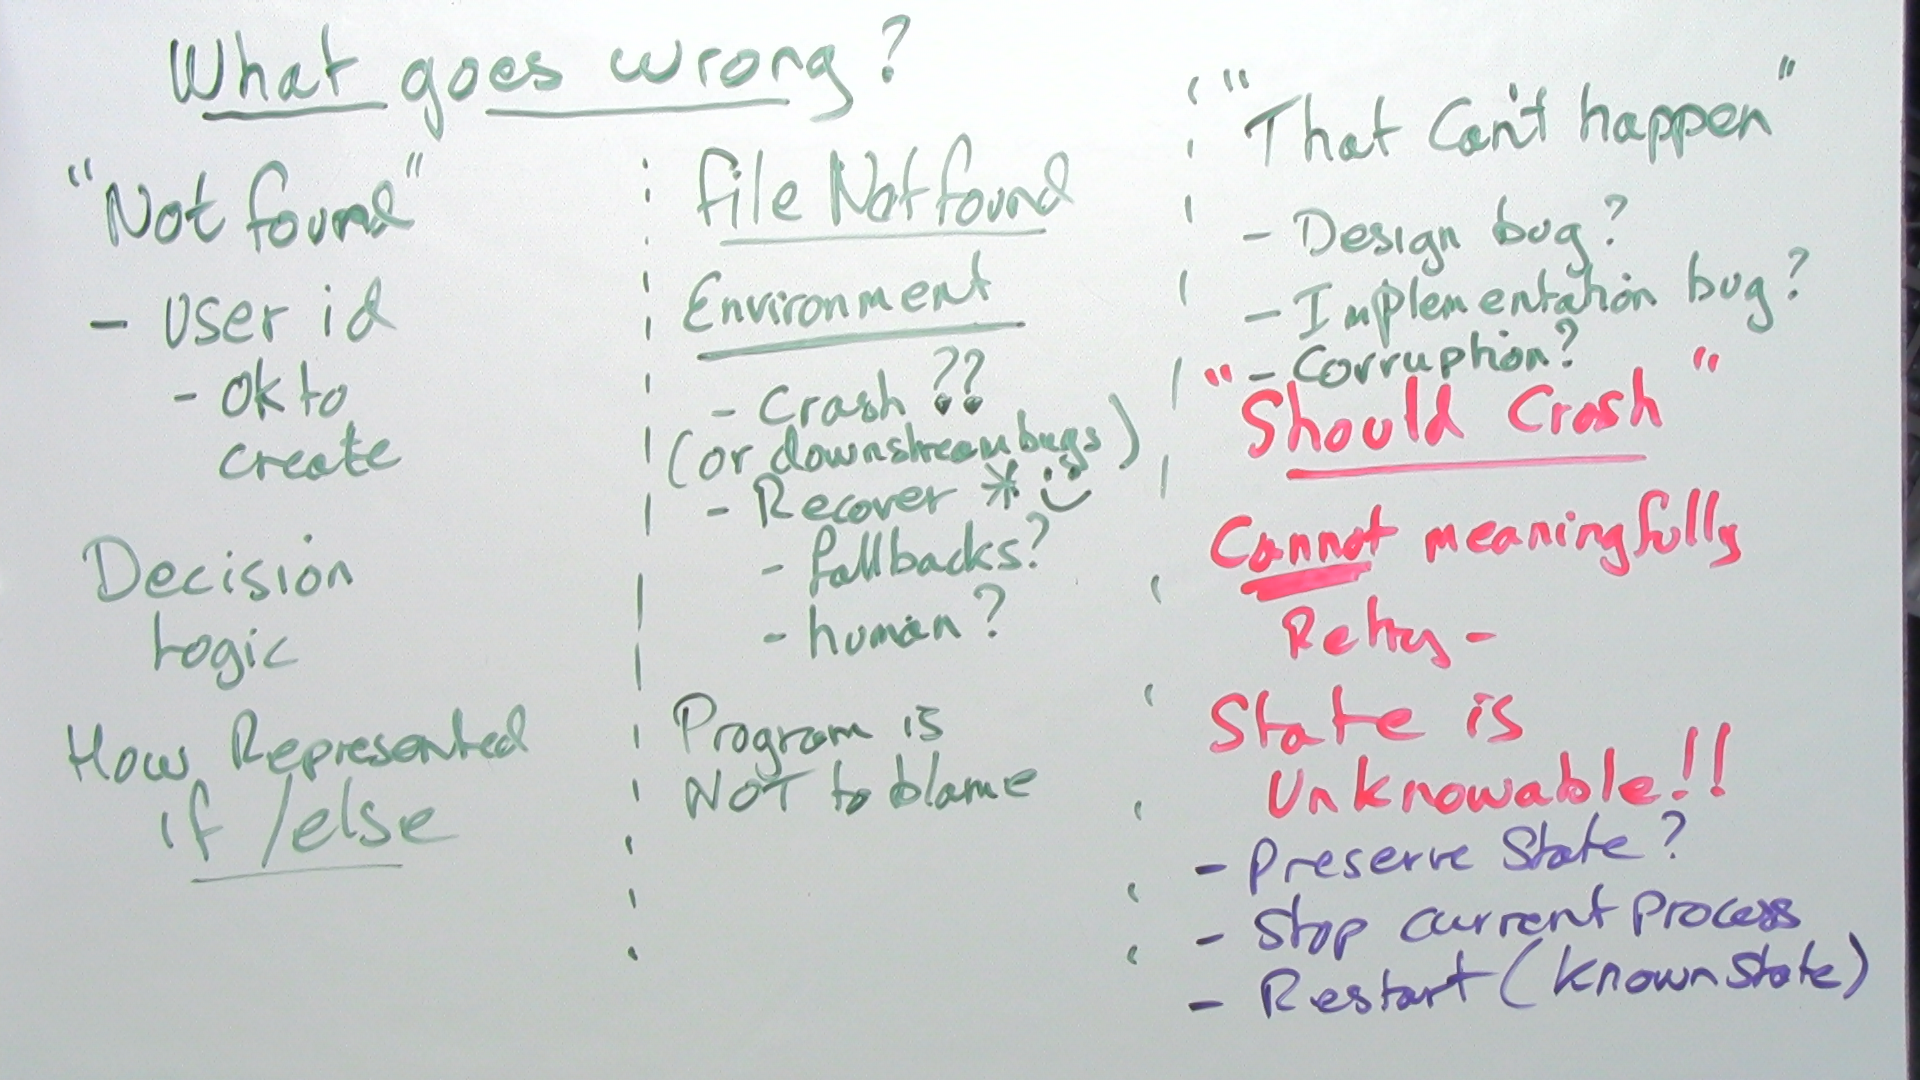 What goes wrong?
"Not found"
- User id
- Ok to
create
Decision
Logic
How Represented
if / else
File Not found
Environment
- Crash ??
(or downstream bugs)
- Recover *
- fallbacks?
- human?
Program is
NOT to blame
"That Can't happen"
- Design bug?
- Implementation bug?
- Corruption?
"Should Crash"
Cannot meaningfully
Retry -
State is
Unknowable!!
- Preserve State?
- Stop current Process
- Restart (known State)